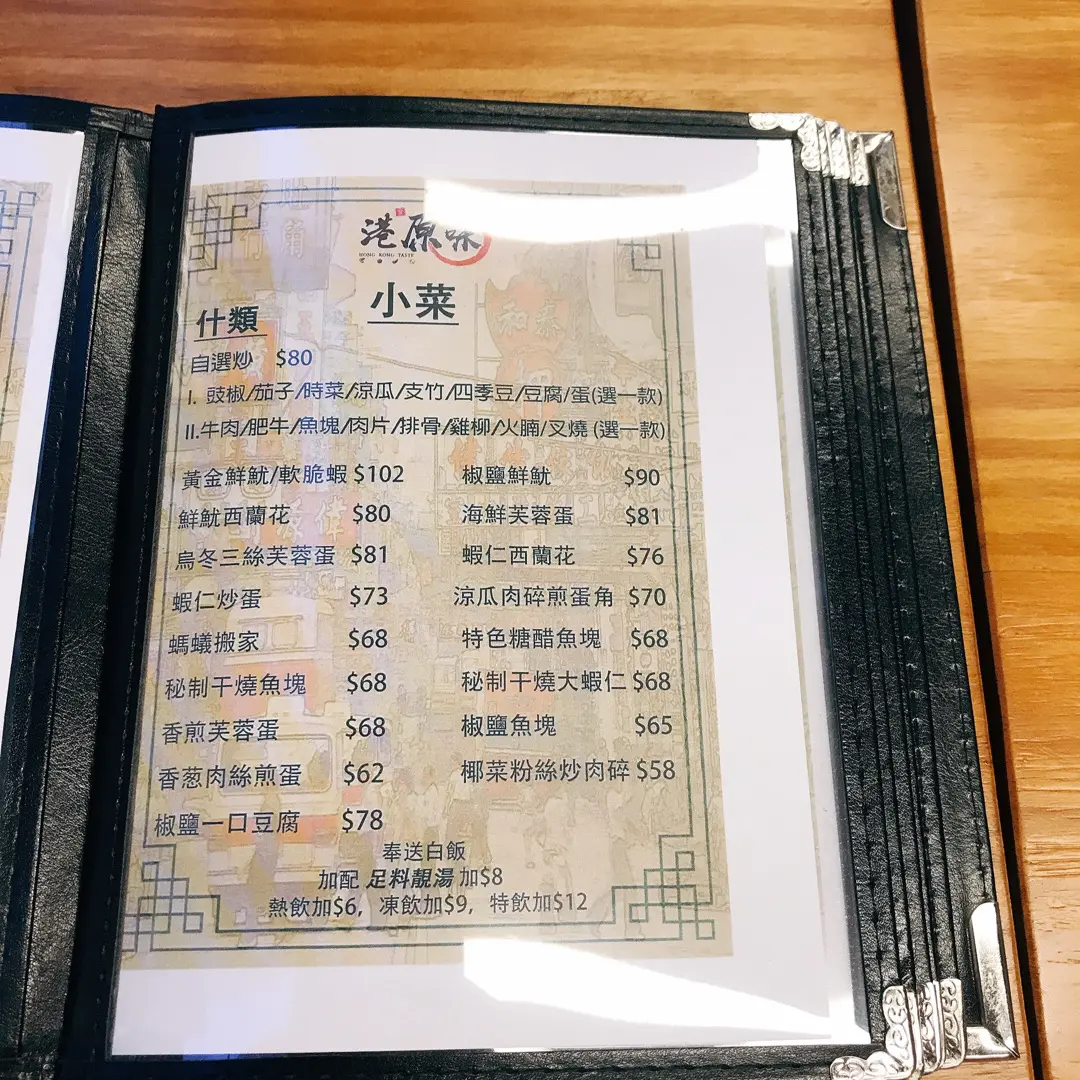 港原味
HONG KONG TASTE
小菜
什類
自選炒 $80
I. 豉椒/茄子/時菜/涼瓜/支竹/四季豆/豆腐/蛋(選一款)
II.牛肉/肥牛/魚塊/肉片/排骨/雞柳/火腩/叉燒 (選一款)
黃金鮮魷/軟脆蝦 $102 椒鹽鮮魷 $90
鮮魷西蘭花 $80 海鮮芙蓉蛋 $81
烏冬三絲芙蓉蛋 $81 蝦仁西蘭花 $76
蝦仁炒蛋 $73 涼瓜肉碎煎蛋角 $70
螞蟻搬家 $68 特色糖醋魚塊 $68
秘制干燒魚塊 $68 秘制干燒大蝦仁 $68
香煎芙蓉蛋 $68 椒鹽魚塊 $65
香葱肉絲煎蛋 $62 椰菜粉絲炒肉碎 $58
椒鹽一口豆腐 $78
奉送白飯
加配 足料靚湯 加$8
熱飲加$6, 凍飲加$9, 特飲加$12